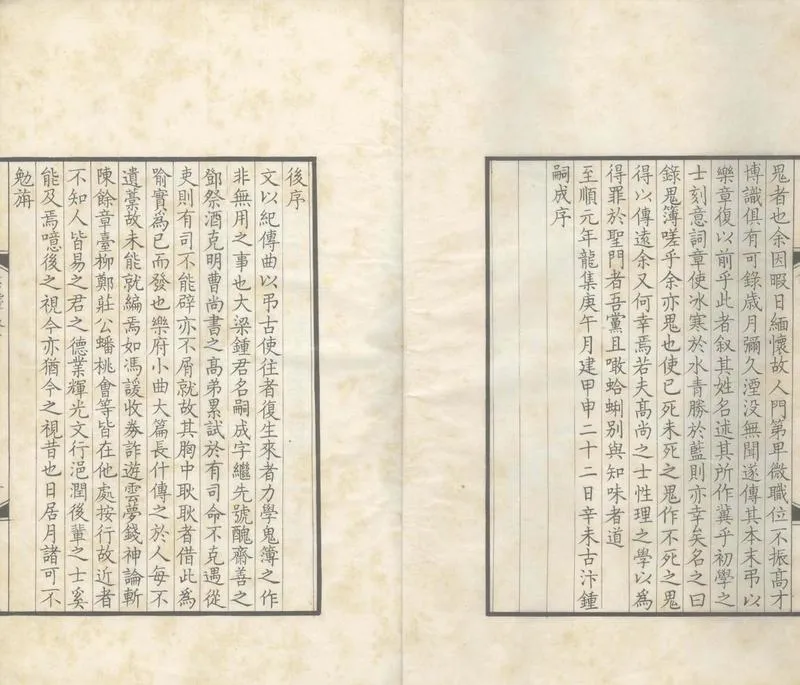 鬼者也余因暇日緬懷故人門第卑微職位不振髙才
博識俱有可錄歲月彌久湮没無聞遂傳其本末弔以
樂章復以前乎此者叙其姓名述其所作冀乎初學之
士刻意詞章使冰寒於水青勝於藍則亦幸矣名之曰
錄鬼簿嗟乎余亦鬼也使已死未死之鬼作不死之鬼
得以傳遠余又何幸焉若夫髙尚之士性理之學以為
得罪於聖門者吾黨且噉蛤蜊别與知味者道
至順元年龍集庚午月建甲申二十二日辛未古汴鍾
嗣成序
後序
文以紀傳曲以弔古使往者復生來者力學鬼簿之作
非無用之事也大梁鍾君名嗣成字繼先號醜齋善之
鄧祭酒克明曹尚書之髙弟累試於有司命不克遇從
吏則有司不能辟亦不屑就故其胸中耿耿者借此為
喻實為已而發也樂府小曲大篇長什傳之於人每不
遺藁故未能就編焉如馮諼收券詐遊雲夢錢神論斬
陳餘章臺柳鄭莊公蟠桃會等皆在他處按行故近者
不知人皆易之君之德業輝光文行浥潤後輩之士奚
能及焉噫後之視今亦猶今之視昔也日居月諸可不
勉旃